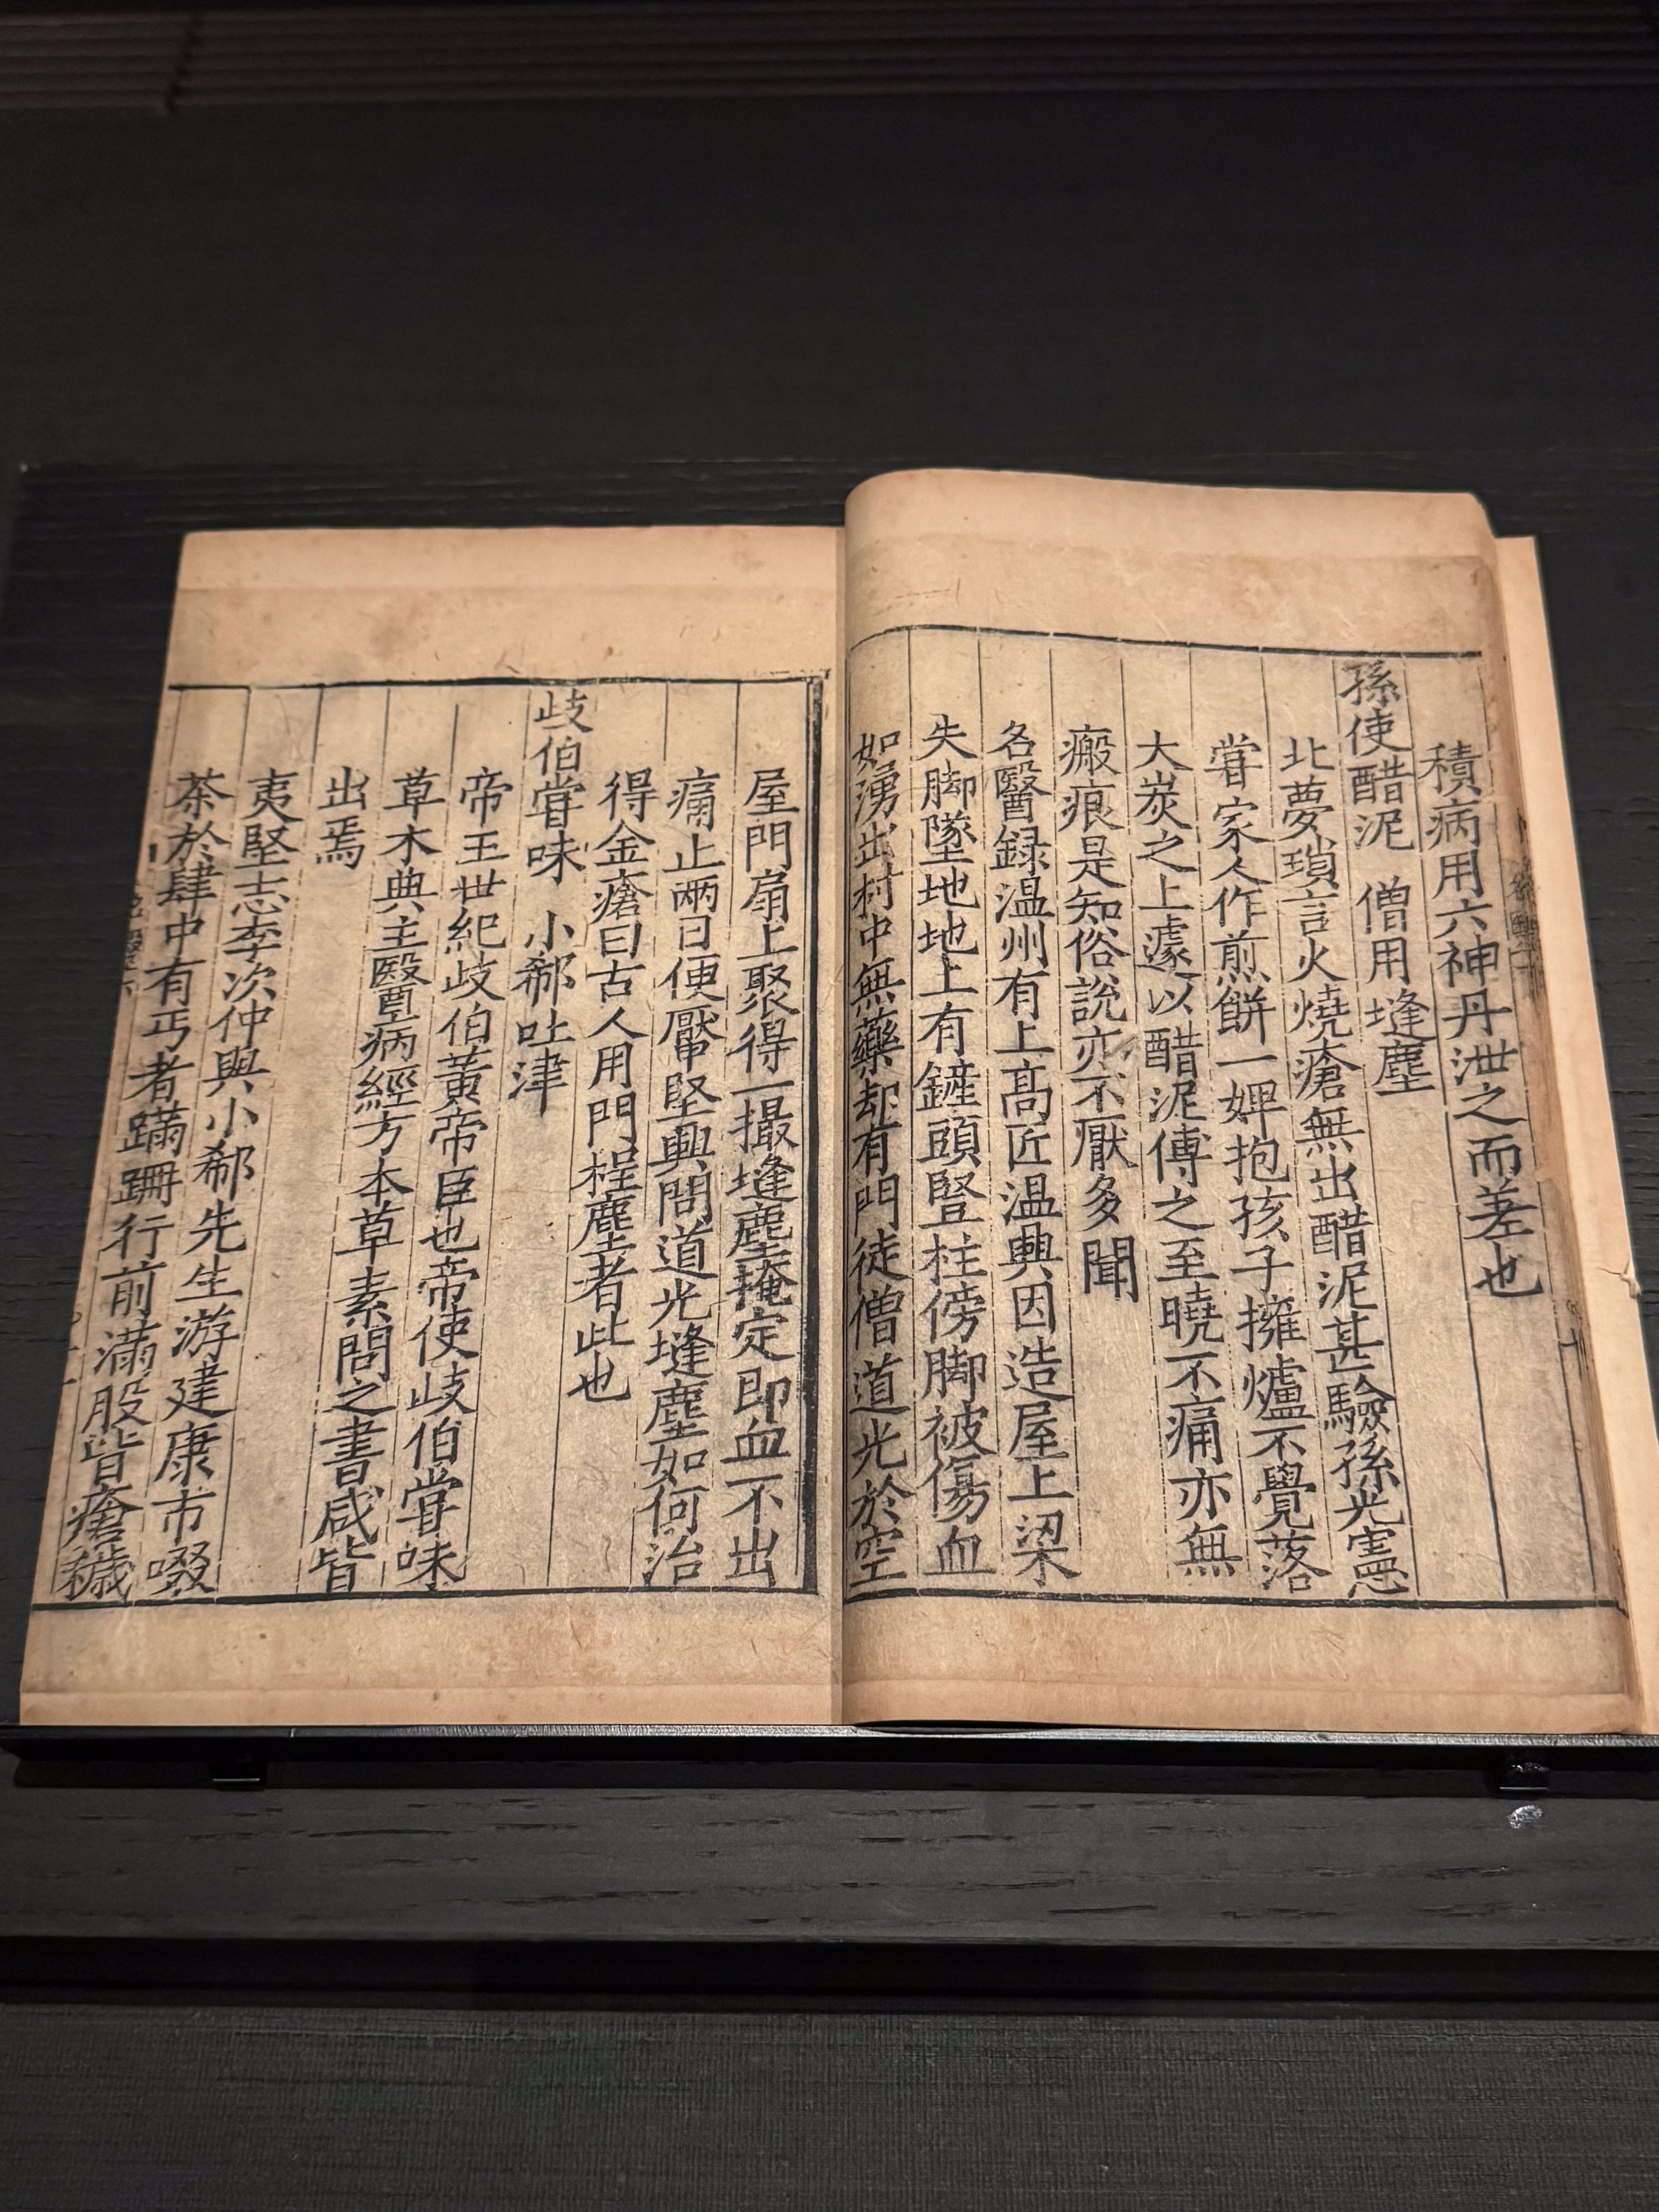 積病用六神丹泄之而差也
孫使醋泥　僧用塵縫
北夢瑣言火燒瘡無出醋泥甚驗孫光憲
甞家人作煎餅一婢抱孩子擁爐不覺落
大炭之上遽以醋泥傅之至曉不痛亦無
瘢痕是知俗說亦不厭多聞
名醫録温州有上高匠温興因造屋上梁
失脚墜地地上有鏟頭豎柱傍脚被傷血
如湧出村中無藥却有門徒僧道光於空
屋門扇上聚得一撮縫塵掩定即血不出
痛止兩日便靨堅興問道光縫塵如何治
得金瘡曰古人用門桯塵者此也
歧伯甞味　小郗吐津
帝王世紀歧伯黃帝臣也帝使歧伯甞味
草木典主醫病經方本草素問之書咸皆
出焉
夷堅志李次仲與小郗先生游建康市啜
茶於肆中有丐者蹣跚行前滿股皆瘡穢